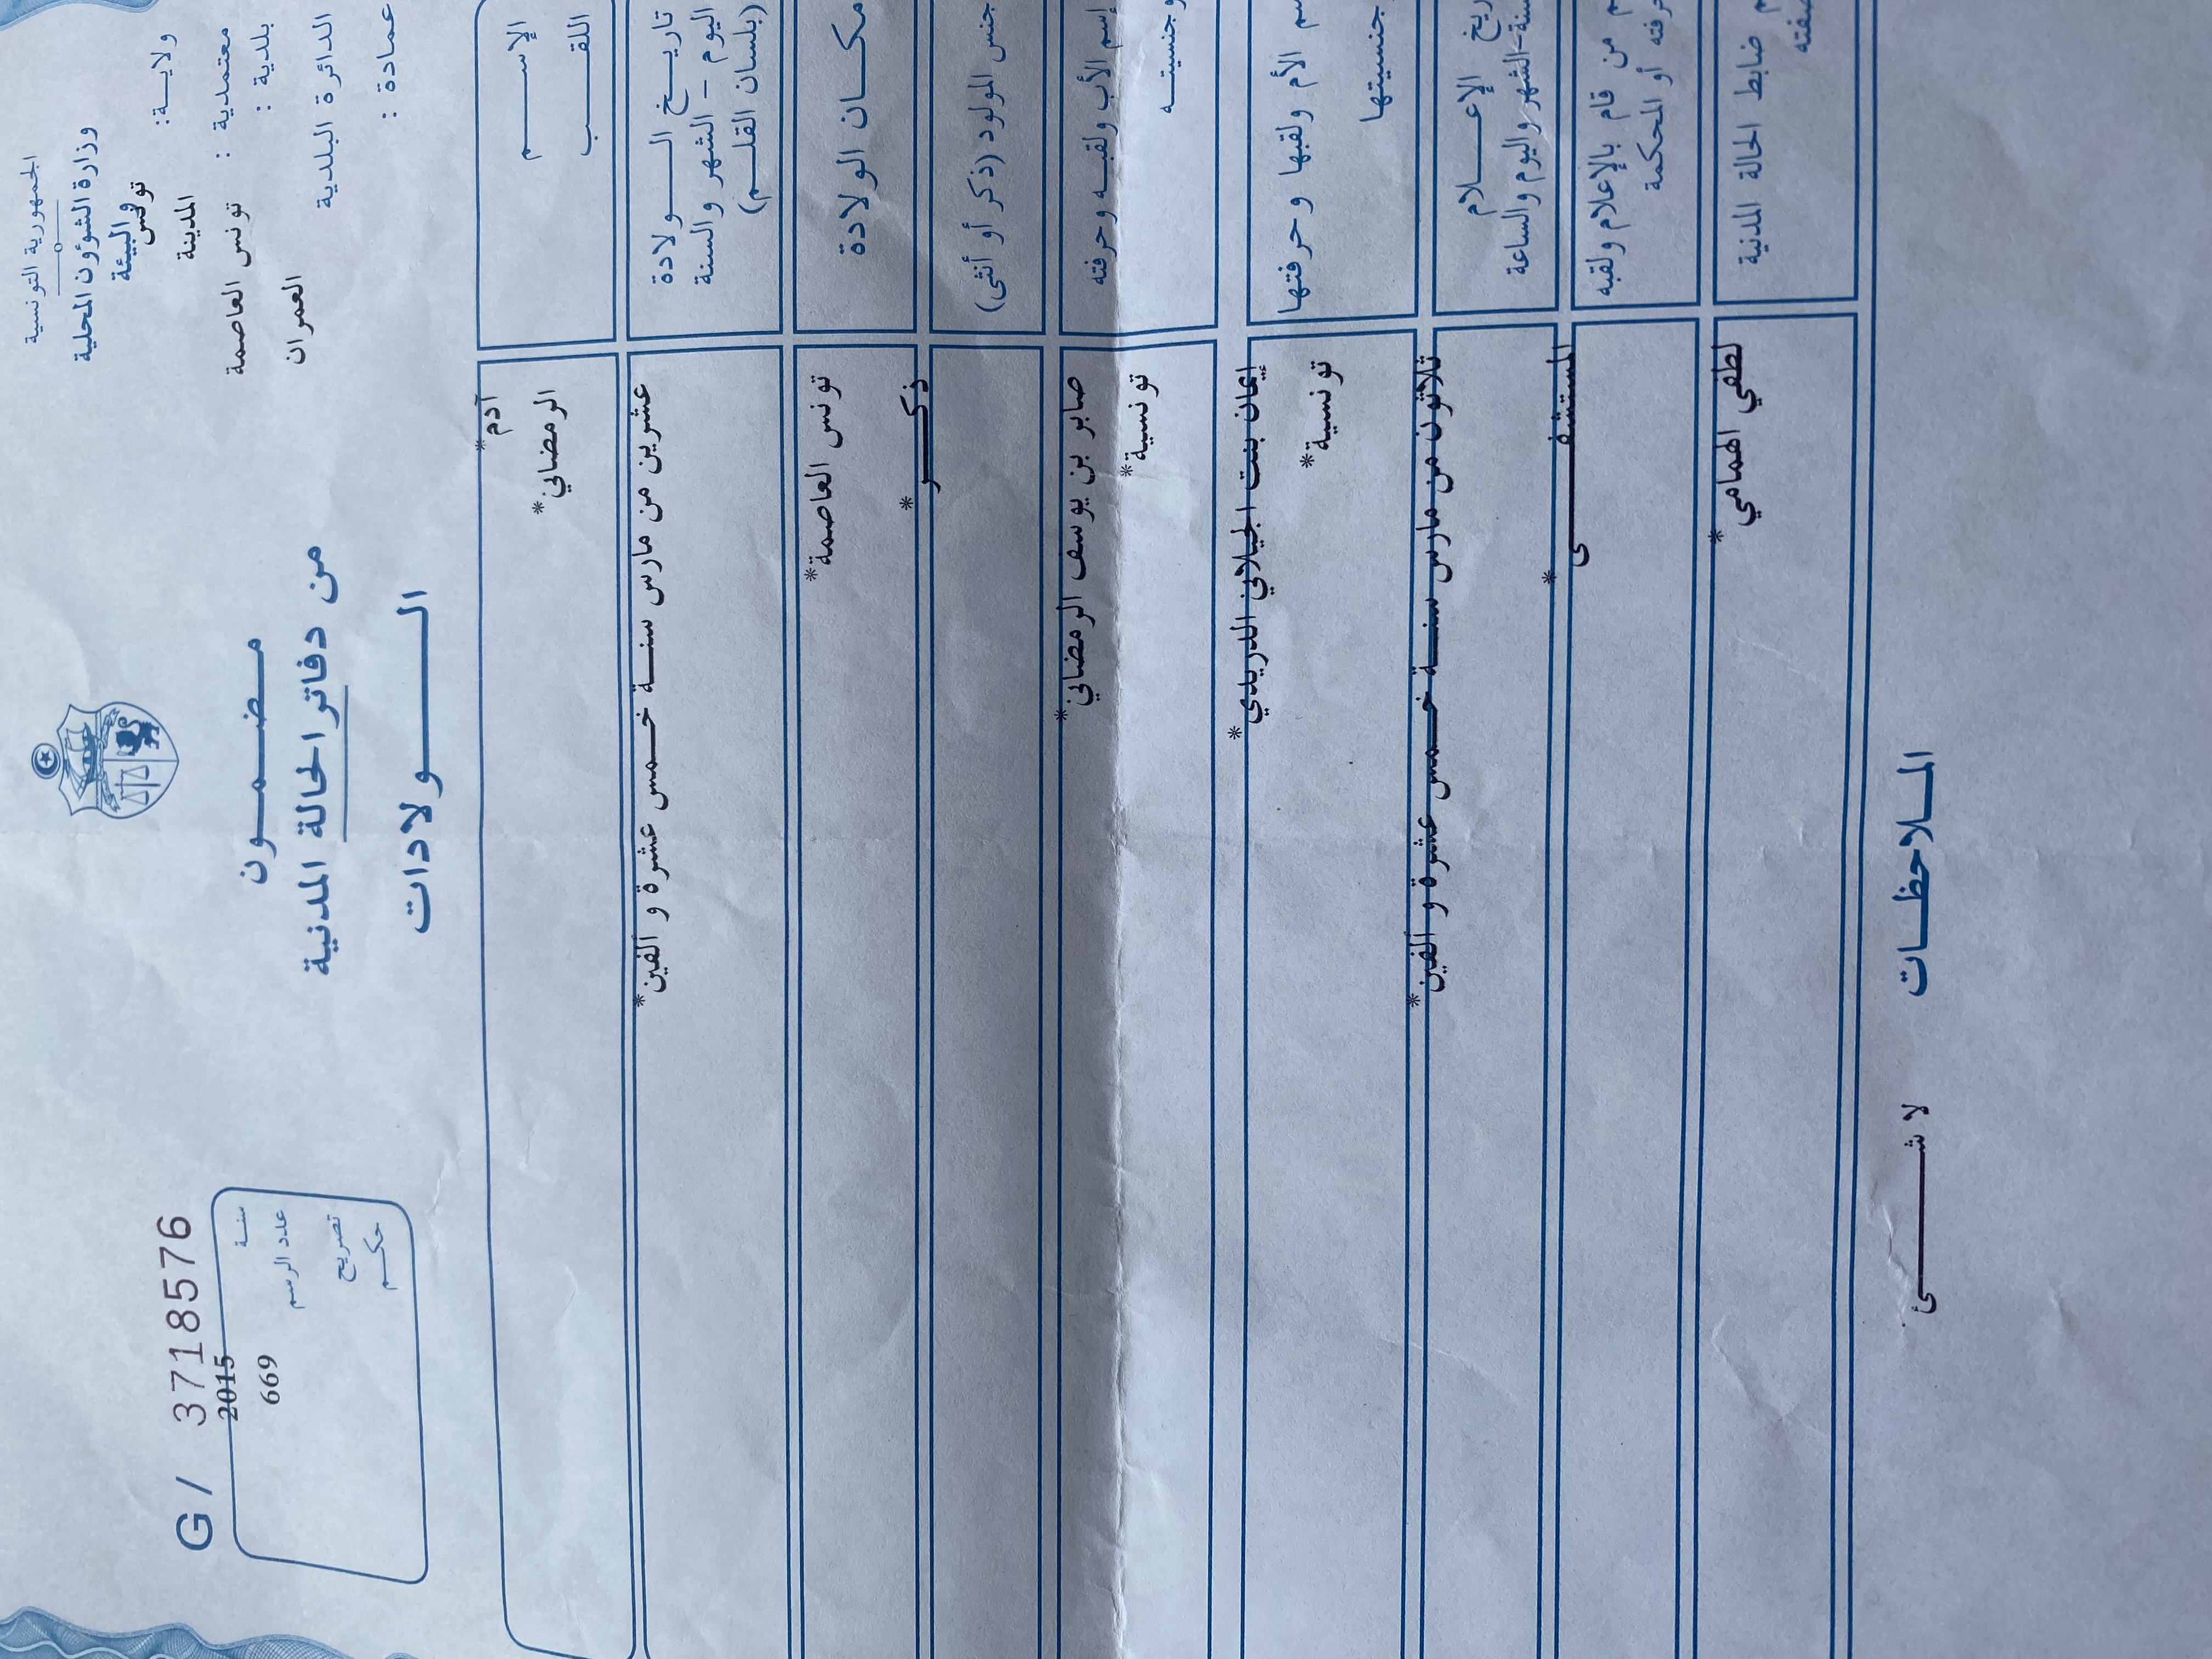 الجمهورية التونسية
وزارة الشؤون المحلية
والبيئة
ولايــة: تونس
معتمدية : المدينة
بلدية : تونس العاصمة
الدائرة البلدية العمران
عمادة :
مـضـمـــون
من دفاتر الحالة المدنية
الـــولادات
G/ 3718576
سنــة 2015
عدد الرسم 669
تصريح
حكــم
الإســـــم آدم*
اللقـــــب الرمضاني*
تاريــخ الــــولادة
اليوم – الشهر والسنة
(بلسان القلــم)
عشرين من مارس سنــة خـــمس عشرة و ألفين*
مكـــان الولادة
تونس العاصمة*
جنس المولود (ذكر أو أنثى)
ذكـــر*
إسم الأب ولقبــه وحرفته
وجنسيتــه
صابر بن يوسف الرمضاني*
تونسية*
الأم ولقبها وحرفتها
جنسيتها
إيمان بنت الجيلاني الدريدي*
تونسية*
الإعــــلام
الشهر واليوم والساعة
ثلاثون من مارس سنــة خـــمس عشرة و ألفين*
من قام بالإعلام ولقبه
أو المحكمة
المستشفــــى*
ضابط الحالة المدنية
لطفي الهمامي*
المــلاحظــات
لا شــــــئ